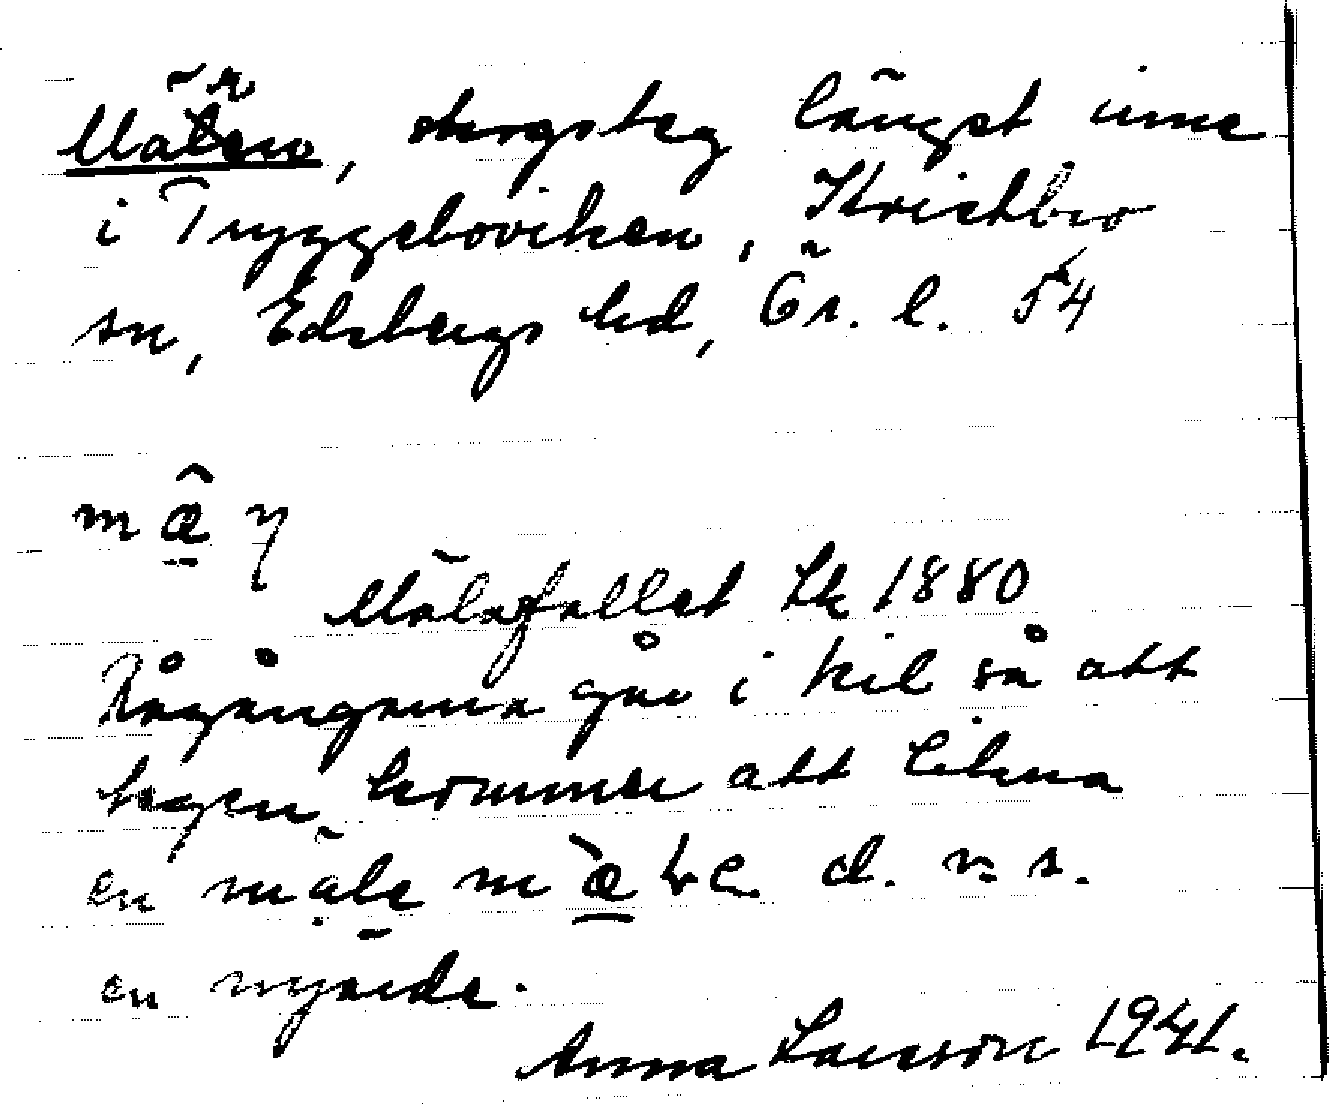 Mälen, skogsteg längst inne
i Tryggeboviken, Kvistbro
sn, Edsbergs hd, Ör. l. 54
Mälafallet Lk 1880
Rågångarna går i kil så att
tegen kommer att likna
en mäle d. v. s.
en mjärde.
Anna Larsson 1941.